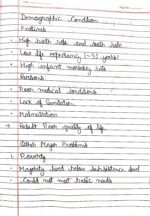 Demographic Condition
Features
High birth rate and death rate
Low life expectancy (~32 years)
High infant mortality rate
Reasons
Poor medical conditions
Lack of Sanitation
Malnutrition
→ Result Poor quality of life
Other Major Problems
1. Poverty
Majority lived below subsistence level
Could not meet basic needs